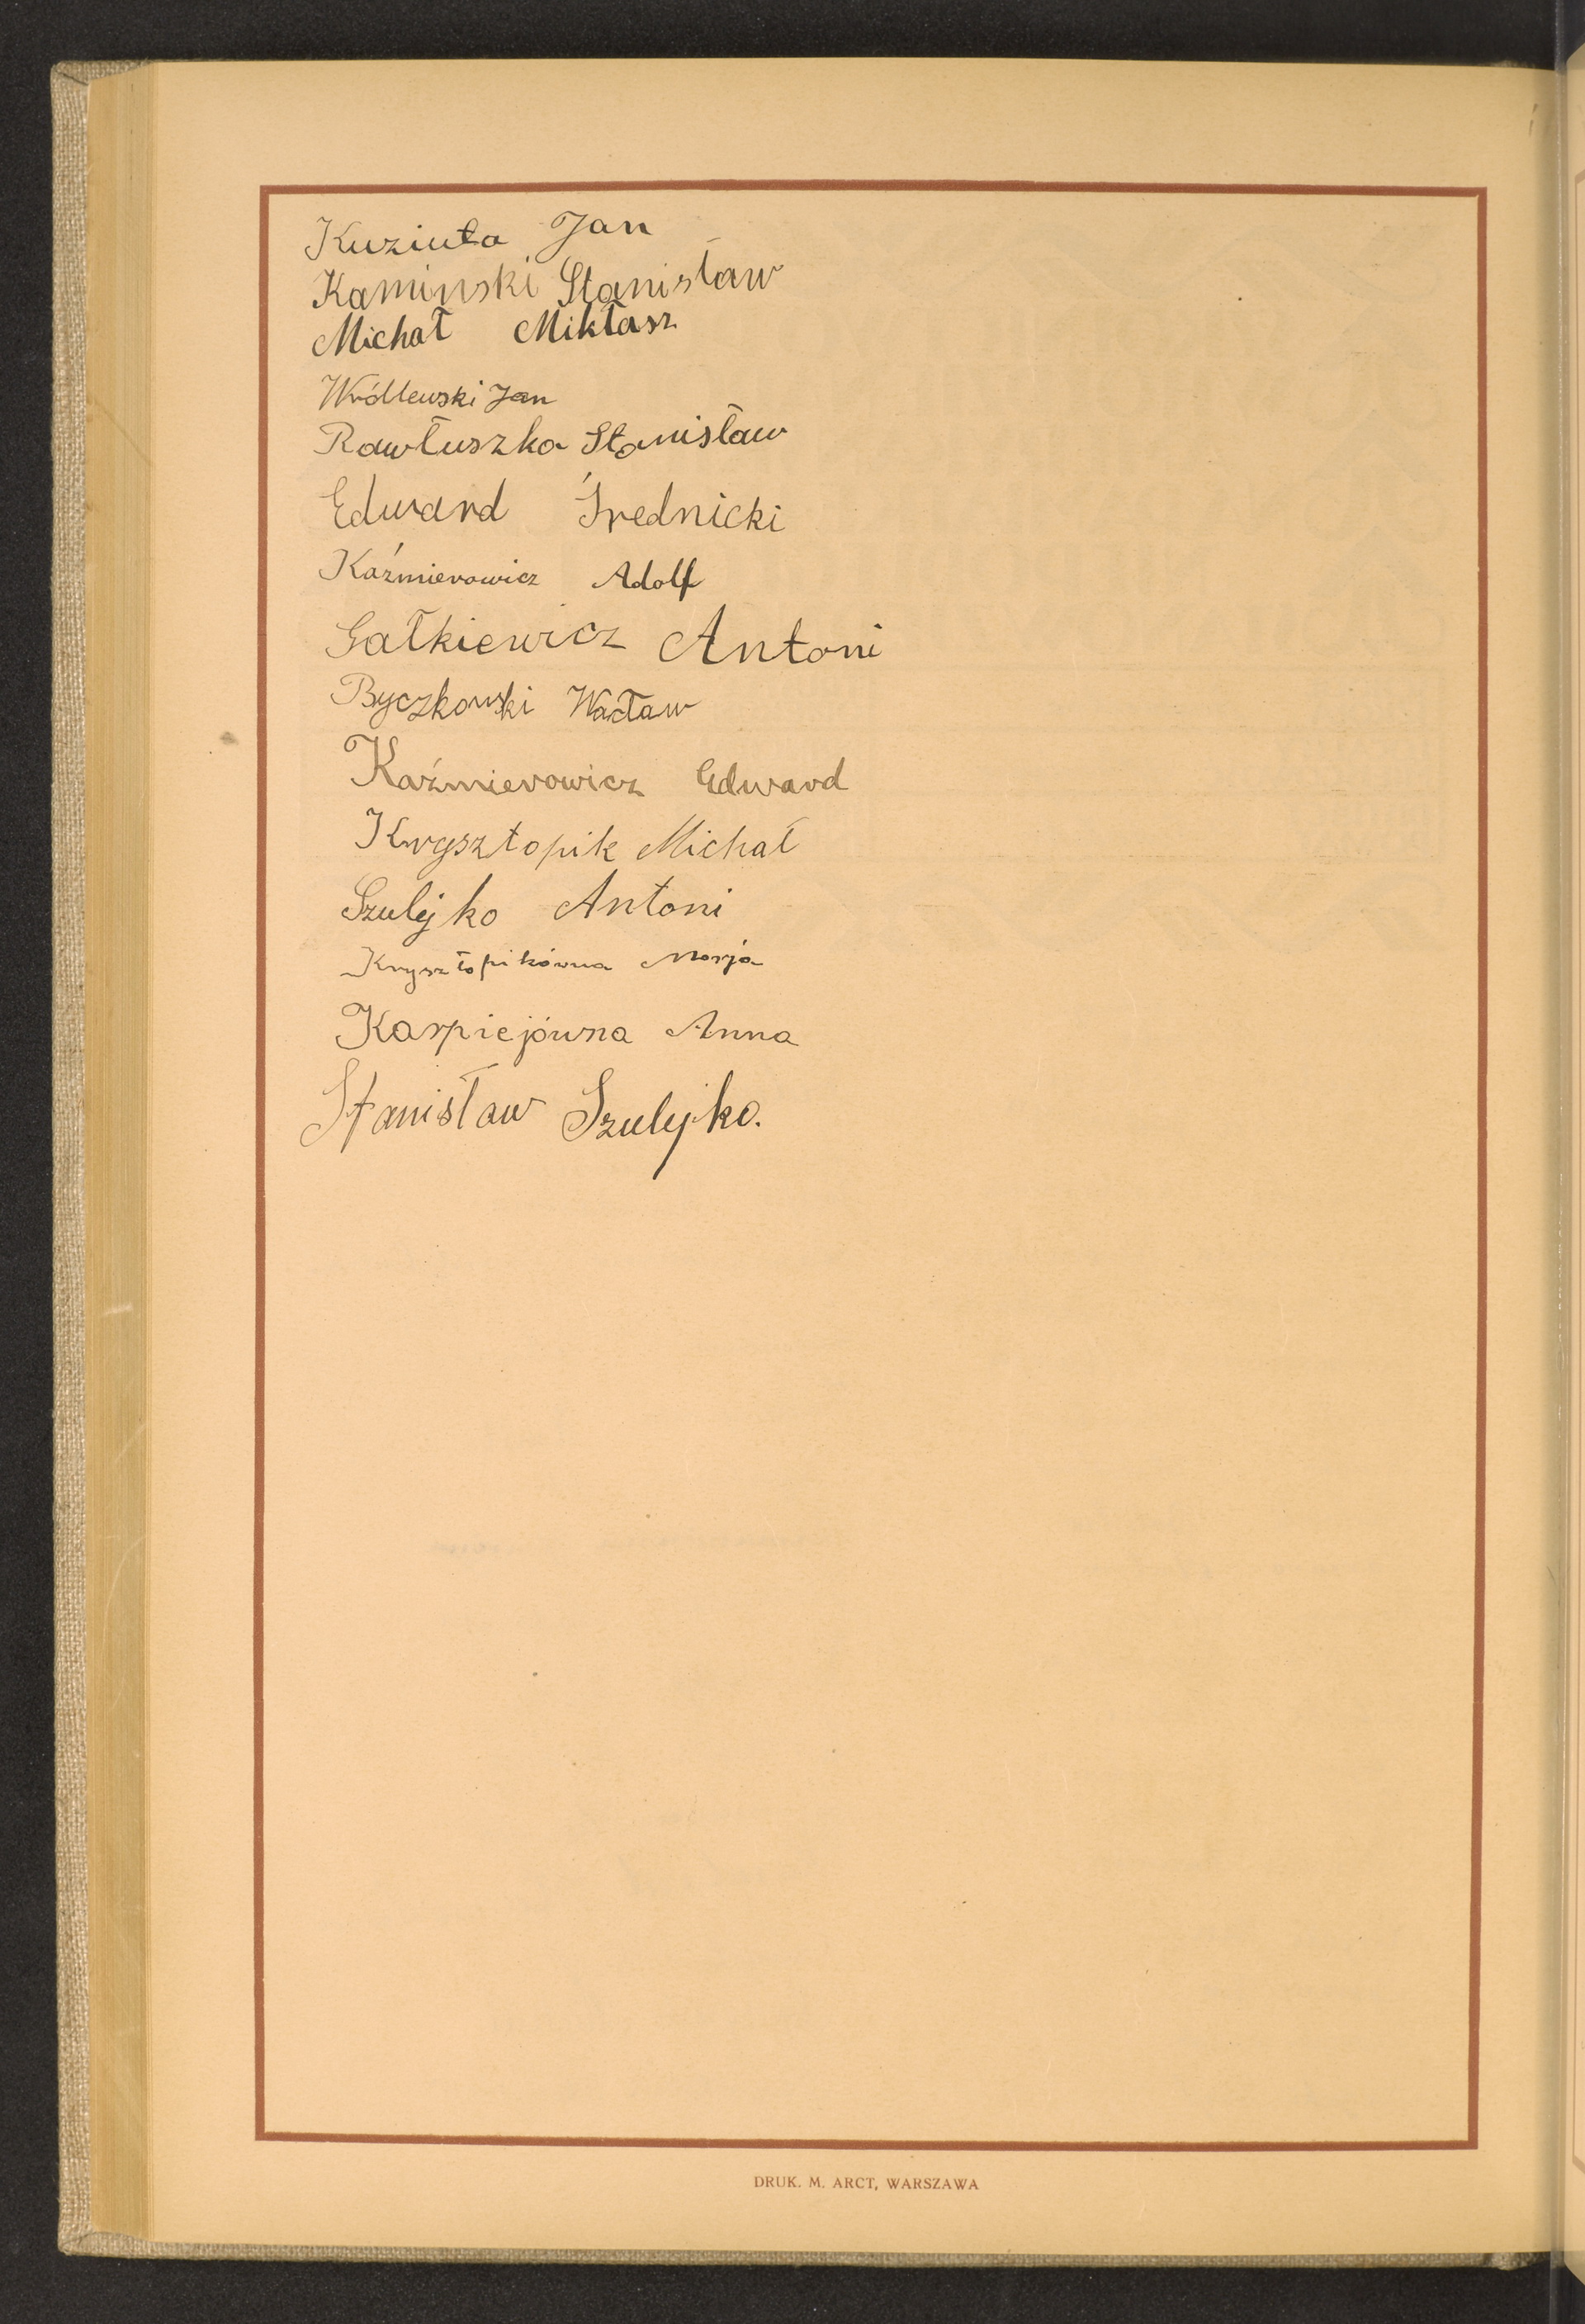 Kuziuta Jan
Kaminski Stanisław
Michał Mikłasz
Wróblewski Jan
Rawłuszka Stanisław
Edward Średnicki
Kaźmierowicz Adolf
Gałkiewicz Antoni
Byczkowski Wacław
Kaźmierowicz Edward
Krysztopik Michał
Szulejko Antoni
Krysztopikówna Marja
Karpiejówna Anna
Stanisław Szulejko.
DRUK. M. ARCT, WARSZAWA